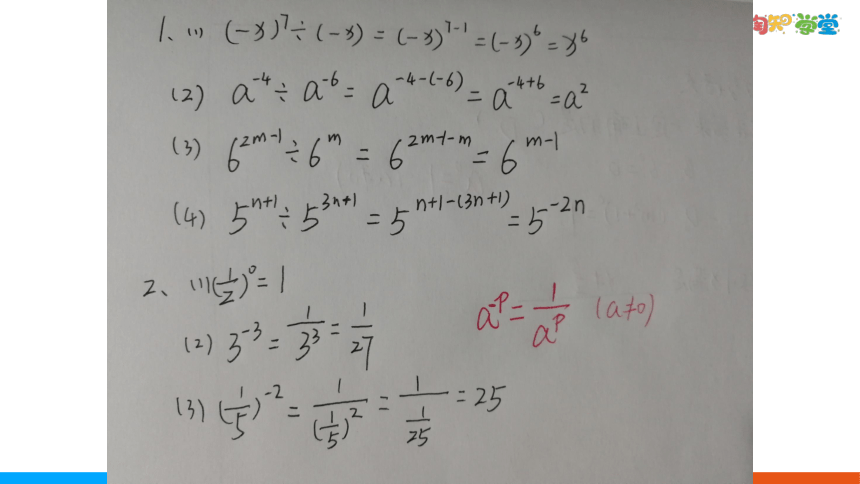 淘知学堂
1、(1) (-x)⁷÷(-x) = (-x)⁷⁻¹ = (-x)⁶ = x⁶
(2) a⁻⁴÷a⁻⁶ = a⁻⁴⁻⁽⁻⁶⁾ = a⁻⁴⁺⁶ = a²
(3) 6^(2m-1)÷6^m = 6^(2m-1-m) = 6^(m-1)
(4) 5^(n+1)÷5^(3n+1) = 5^(n+1-(3n+1)) = 5^(-2n)
2、(1) (1/2)⁰ = 1
(2) 3⁻³ = 1/3³ = 1/27
a^(-p) = 1/a^p (a≠0)
(3) (1/5)⁻² = 1/(1/5)² = 1/(1/25) = 25